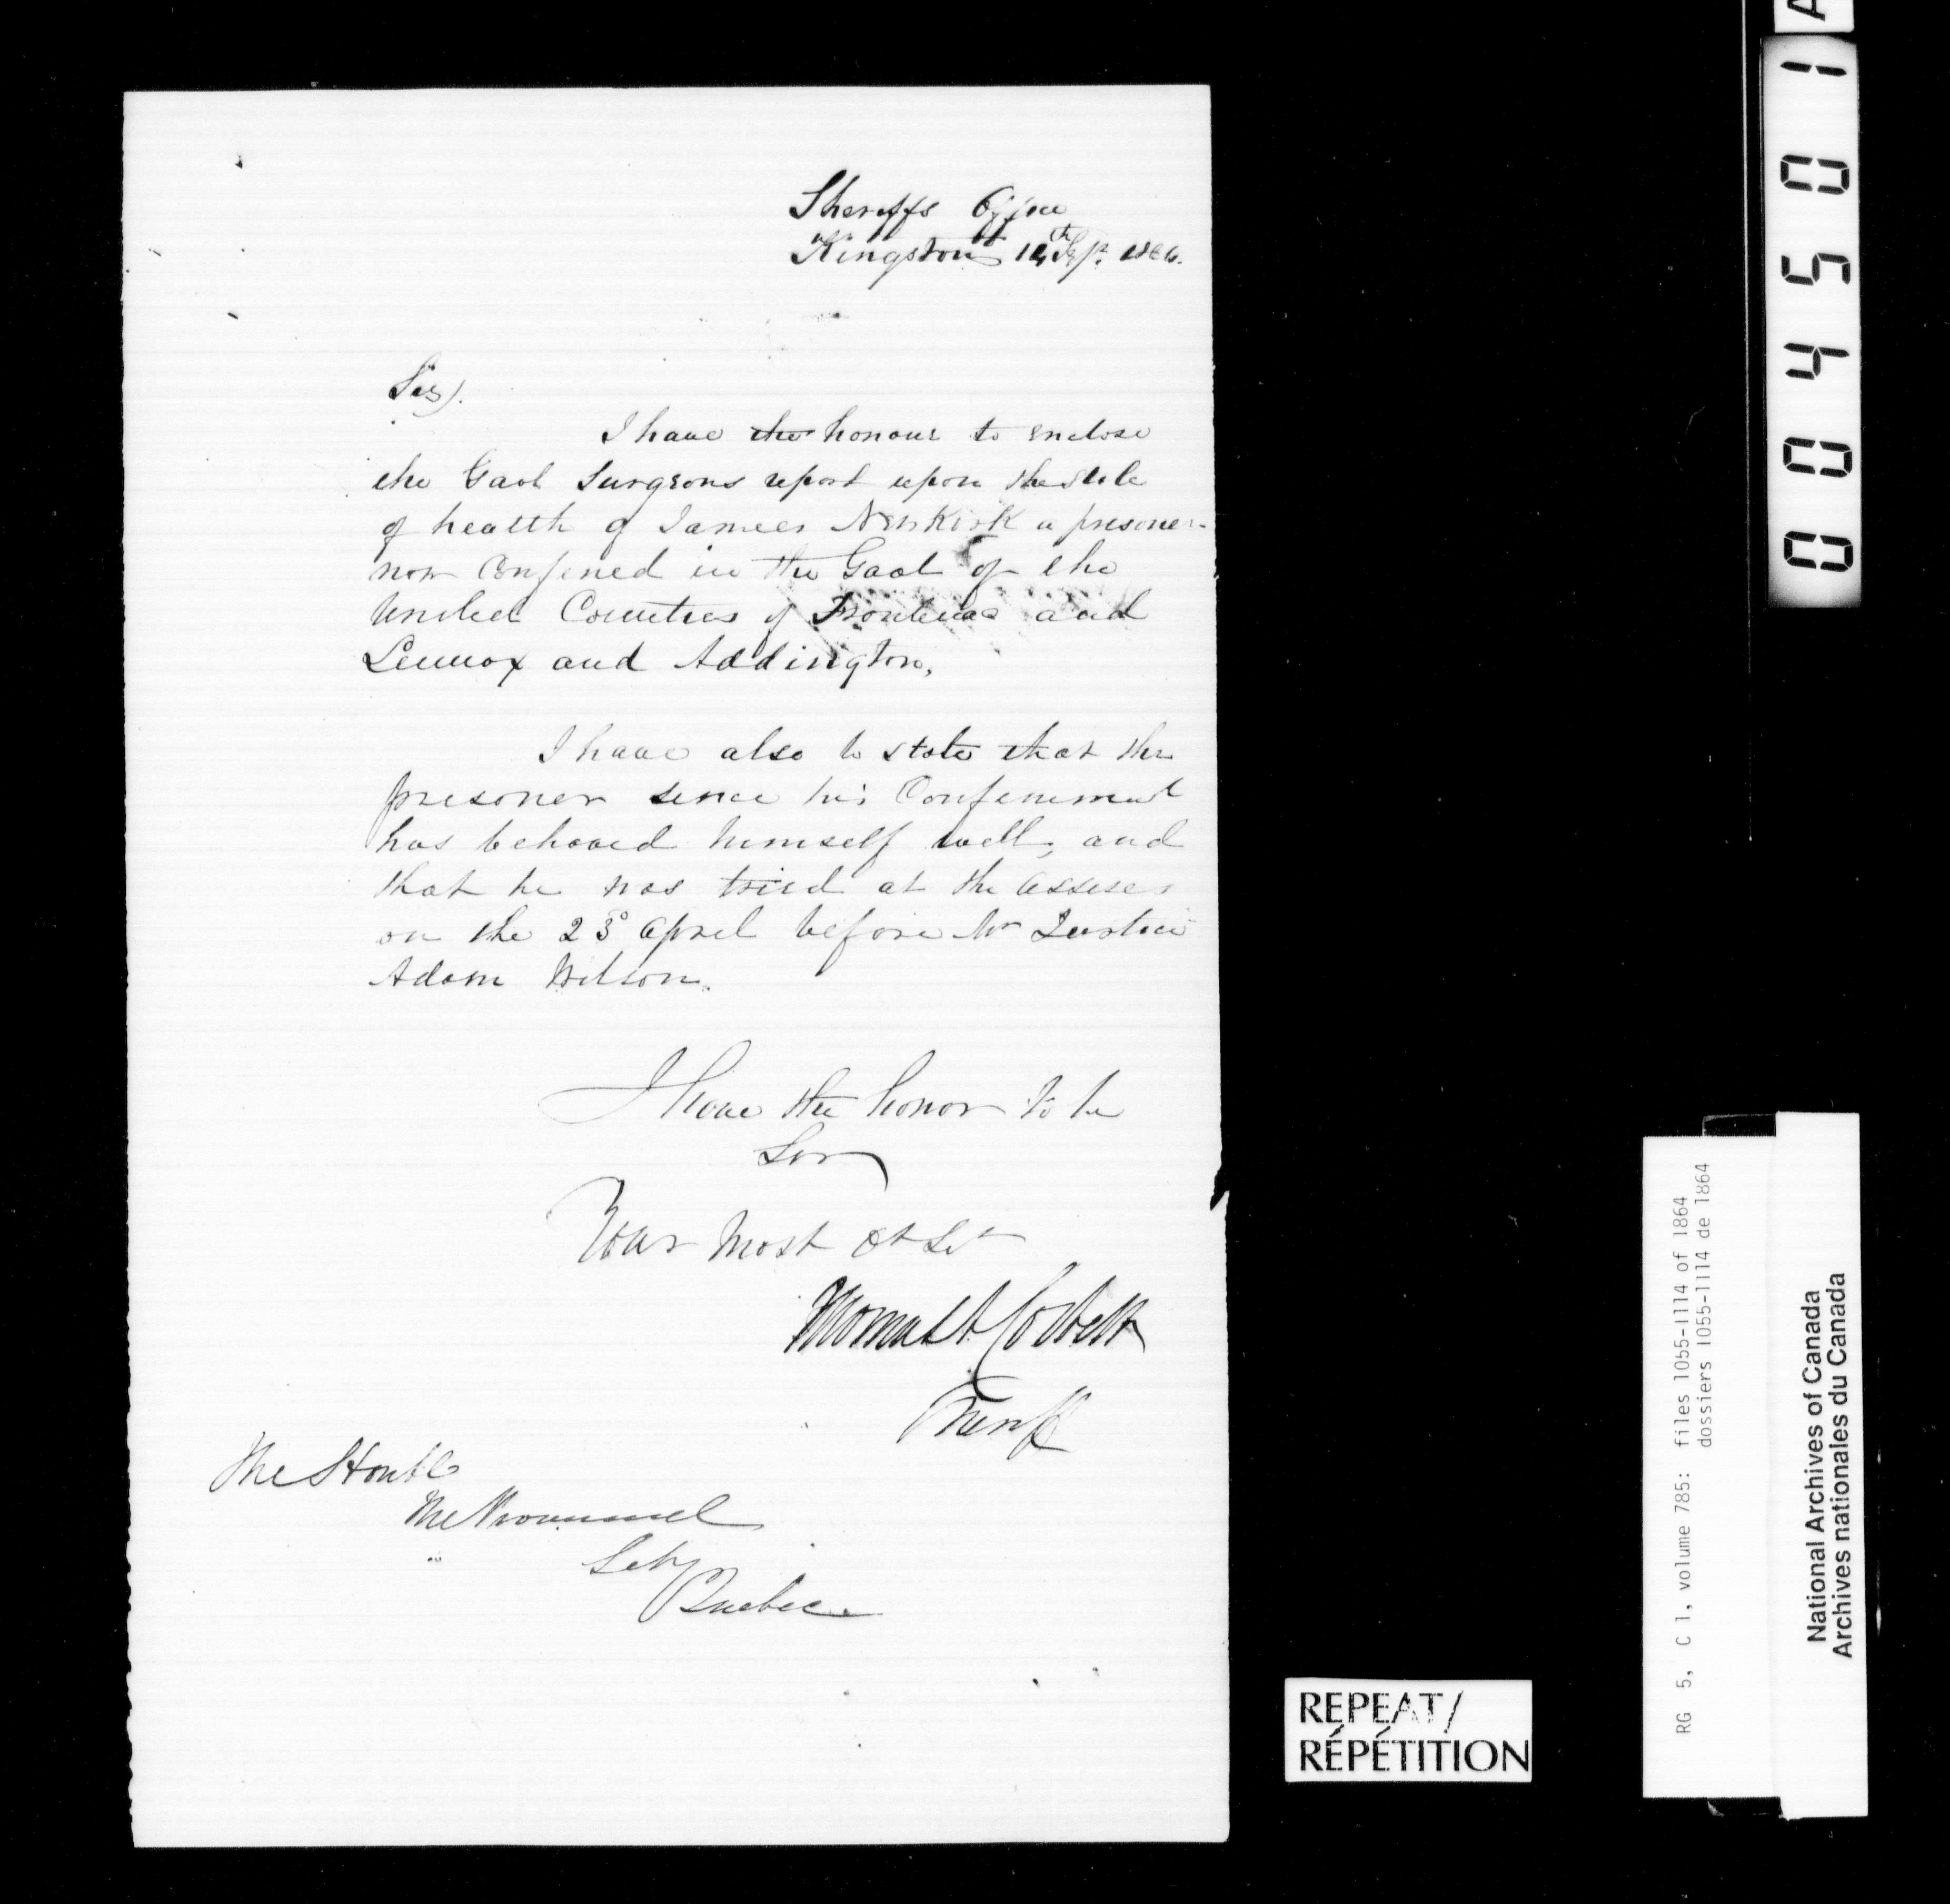 Sheriffs Office
Kingston 14th Sept. 1864.
Sir,
I have the honour to enclose
the Gaol Surgeons report upon the state
of health of James Newkirk a prisoner
now Confined in the Gaol of the
United Counties of Frontenac and
Lennox and Addington,
I have also to state that the
prisoner since his Confinement
has behaved himself well, and
that he was tried at the assizes
on the 23d April before Mr Justice
Adam Wilson.
I have the honor to be
Sir
Your Most Obt Svt
Corbett
Sheriff
The Honble
The Provincial
Secy
Quebec
REPEAT/
RÉPÉTITION
004501
RG 5, C 1, volume 785: files 1055-1114 of 1864
dossiers 1055-1114 de 1864
National Archives of Canada
Archives nationales du Canada